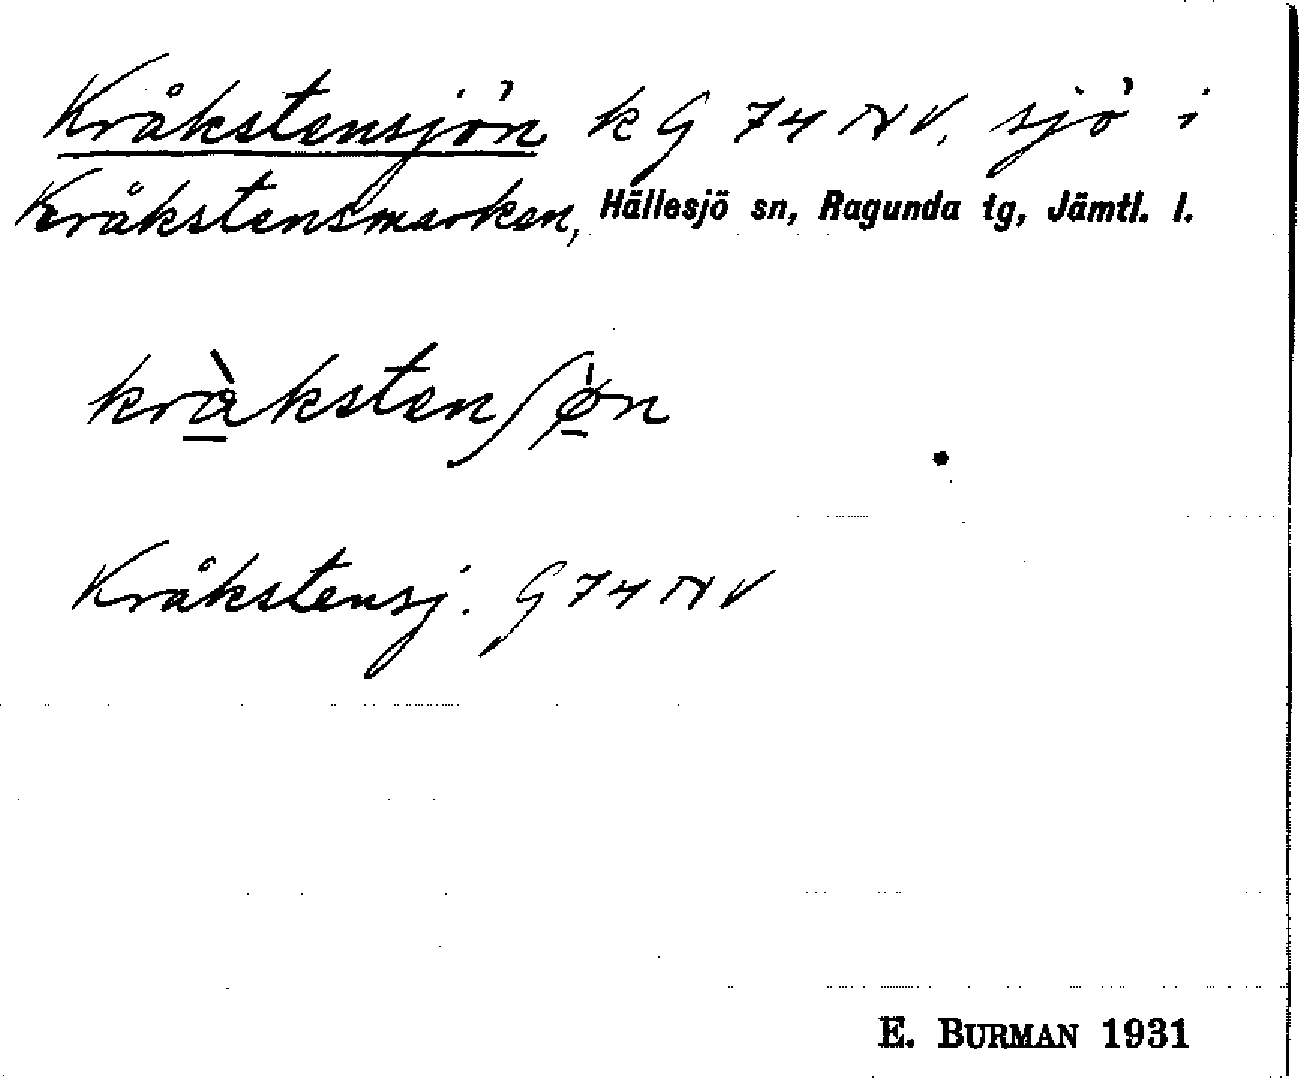 Kråkstensjön k G 74 NV. sjö i
Kråkstensmarken, Hällesjö sn, Ragunda tg, Jämtl. l.
kràkstenʃøn
Kråkstensj. G 74 NV
E. BURMAN 1931